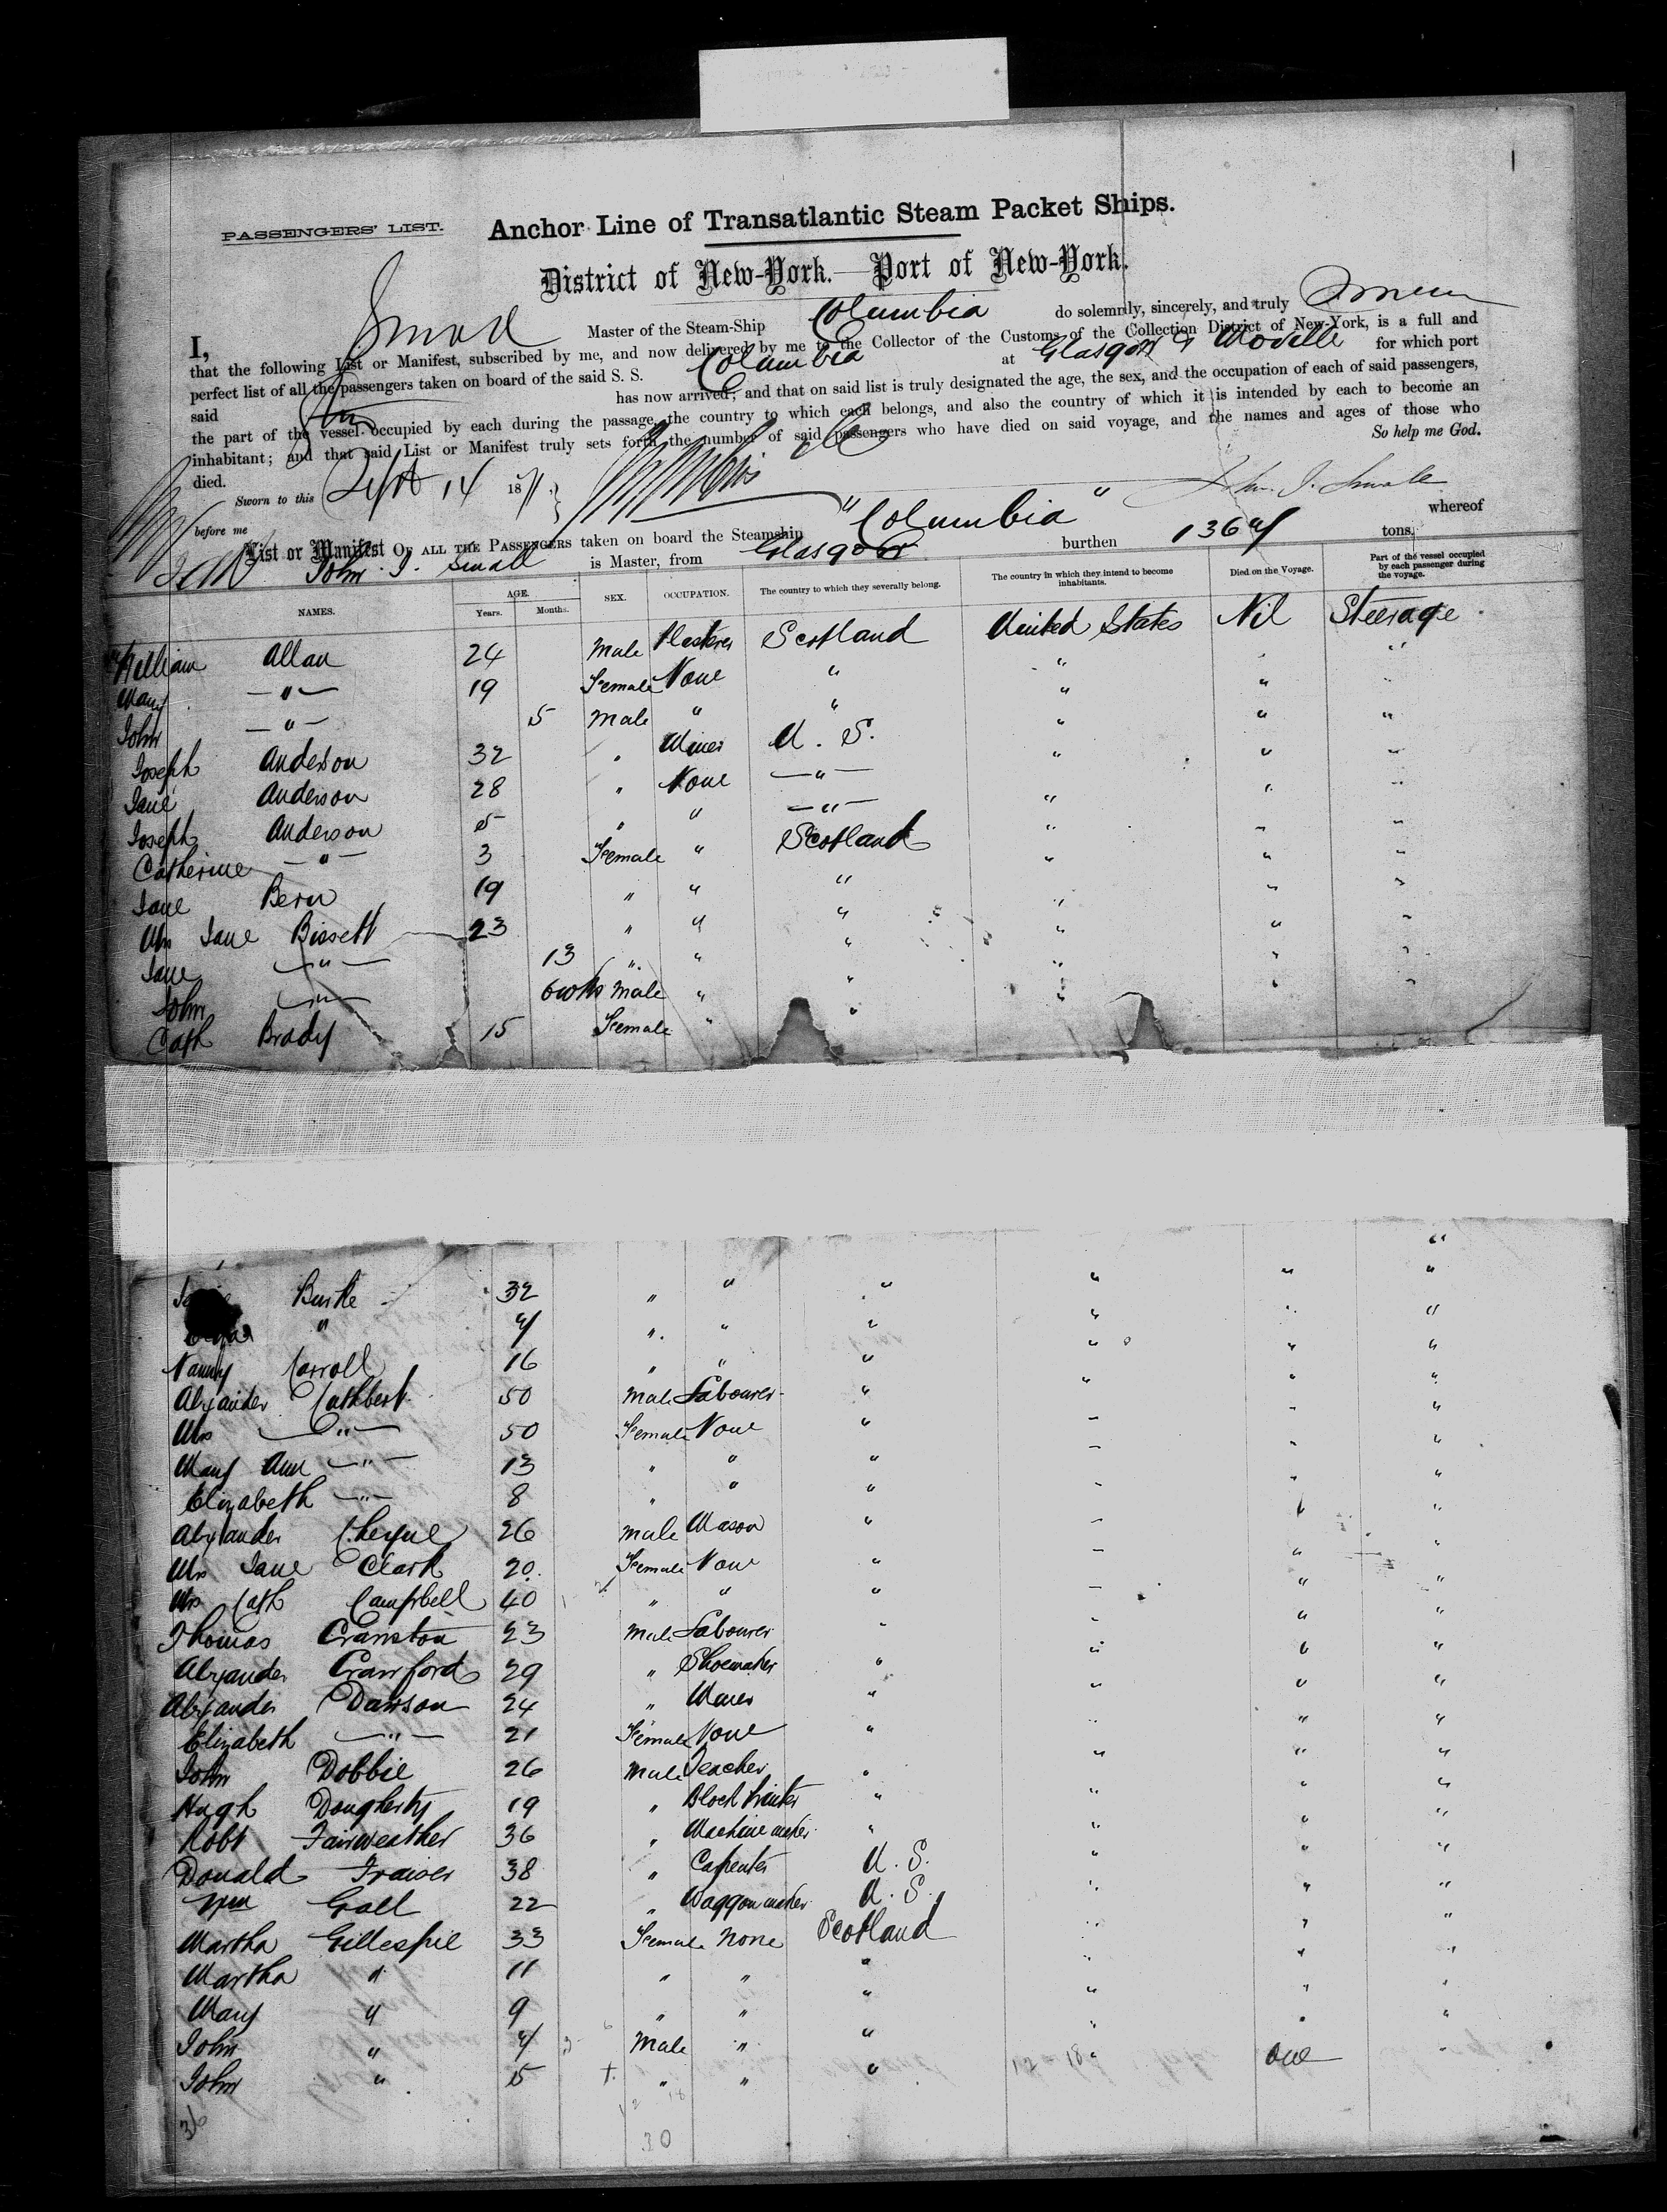 PASSENGERS' LIST.
Anchor Line of Transatlantic Steam Packet Ships.
District of New-York.—Port of New-York.
I, Small Master of the Steam-Ship Columbia do solemnly, sincerely, and truly
that the following List or Manifest, subscribed by me, and now delivered by me to the Collector of the Customs of the Collection District of New-York, is a full and
perfect list of all the passengers taken on board of the said S. S. Columbia at Glasgow & Moville for which port
said has now arrived; and that on said list is truly designated the age, the sex, and the occupation of each of said passengers,
the part of the vessel occupied by each during the passage, the country to which each belongs, and also the country of which it is intended by each to become an
inhabitant; and that said List or Manifest truly sets forth the number of said passengers who have died on said voyage, and the names and ages of those who
died. So help me God.
Sworn to this Sept 14 18
before me John J. Small
List or Manifest OF ALL THE PASSENGERS taken on board the Steamship "Columbia" whereof
John J. Small is Master, from Glasgow burthen tons.
NAMES. AGE. Years. Months. SEX. OCCUPATION. The country to which they severally belong. The country in which they intend to become inhabitants. Died on the Voyage. Part of the vessel occupied by each passenger during the voyage.
William Allan 24 Male Plasterer Scotland United States Nil Steerage
Mary —"— 19 Female None " " " "
John —"— 5 Male " " " " "
Joseph Anderson 32 " Miner U. S. " " "
Jane Anderson 28 " None —"— " " "
Joseph Anderson 5 " " —"— " " "
Catherine —"— 3 Female " Scotland " " "
Jane 19 " " " " " "
Mrs Jane Bissett 23 " " " " " "
Jane —"— 13 " " " " " "
John —"— 6 wks Male " " " " "
Cath Brady 15 Female " "
Burke 32 " " " " " "
" " " " " " "
Carroll 16 " " " " " "
Alexander Cuthbert 50 Male Labourer " " " "
Mrs —"— 50 Female None " " " "
Mary Ann —"— 13 " " " " " "
Elizabeth —"— 8 " " " " " "
Alexander 26 Male Mason " " " "
Mrs Jane Clark 20 Female None " " " "
Mrs Cath Campbell 40 " " " " " "
Thomas Cranston 23 Male Labourer " " " "
Alexander Crawford 29 " Shoemaker " " " "
Alexander Dawson 24 " Miner " " " "
Elizabeth —"— 21 Female None " " " "
John Dobbie 26 Male Teacher " " " "
Hugh Dougherty 19 " Block Printer " " " "
Robt Fairweather 36 " Machine maker " " " "
Donald Fraiser 38 " Carpenter U. S. " " "
Wm Gall 22 " Waggon maker U. S. " " "
Martha Gillespie 33 Female None Scotland " " "
Martha " 11 " " " " " "
Mary " 9 " " " " " "
John " Male " " " " "
John " 5 " " " " one "
36
30